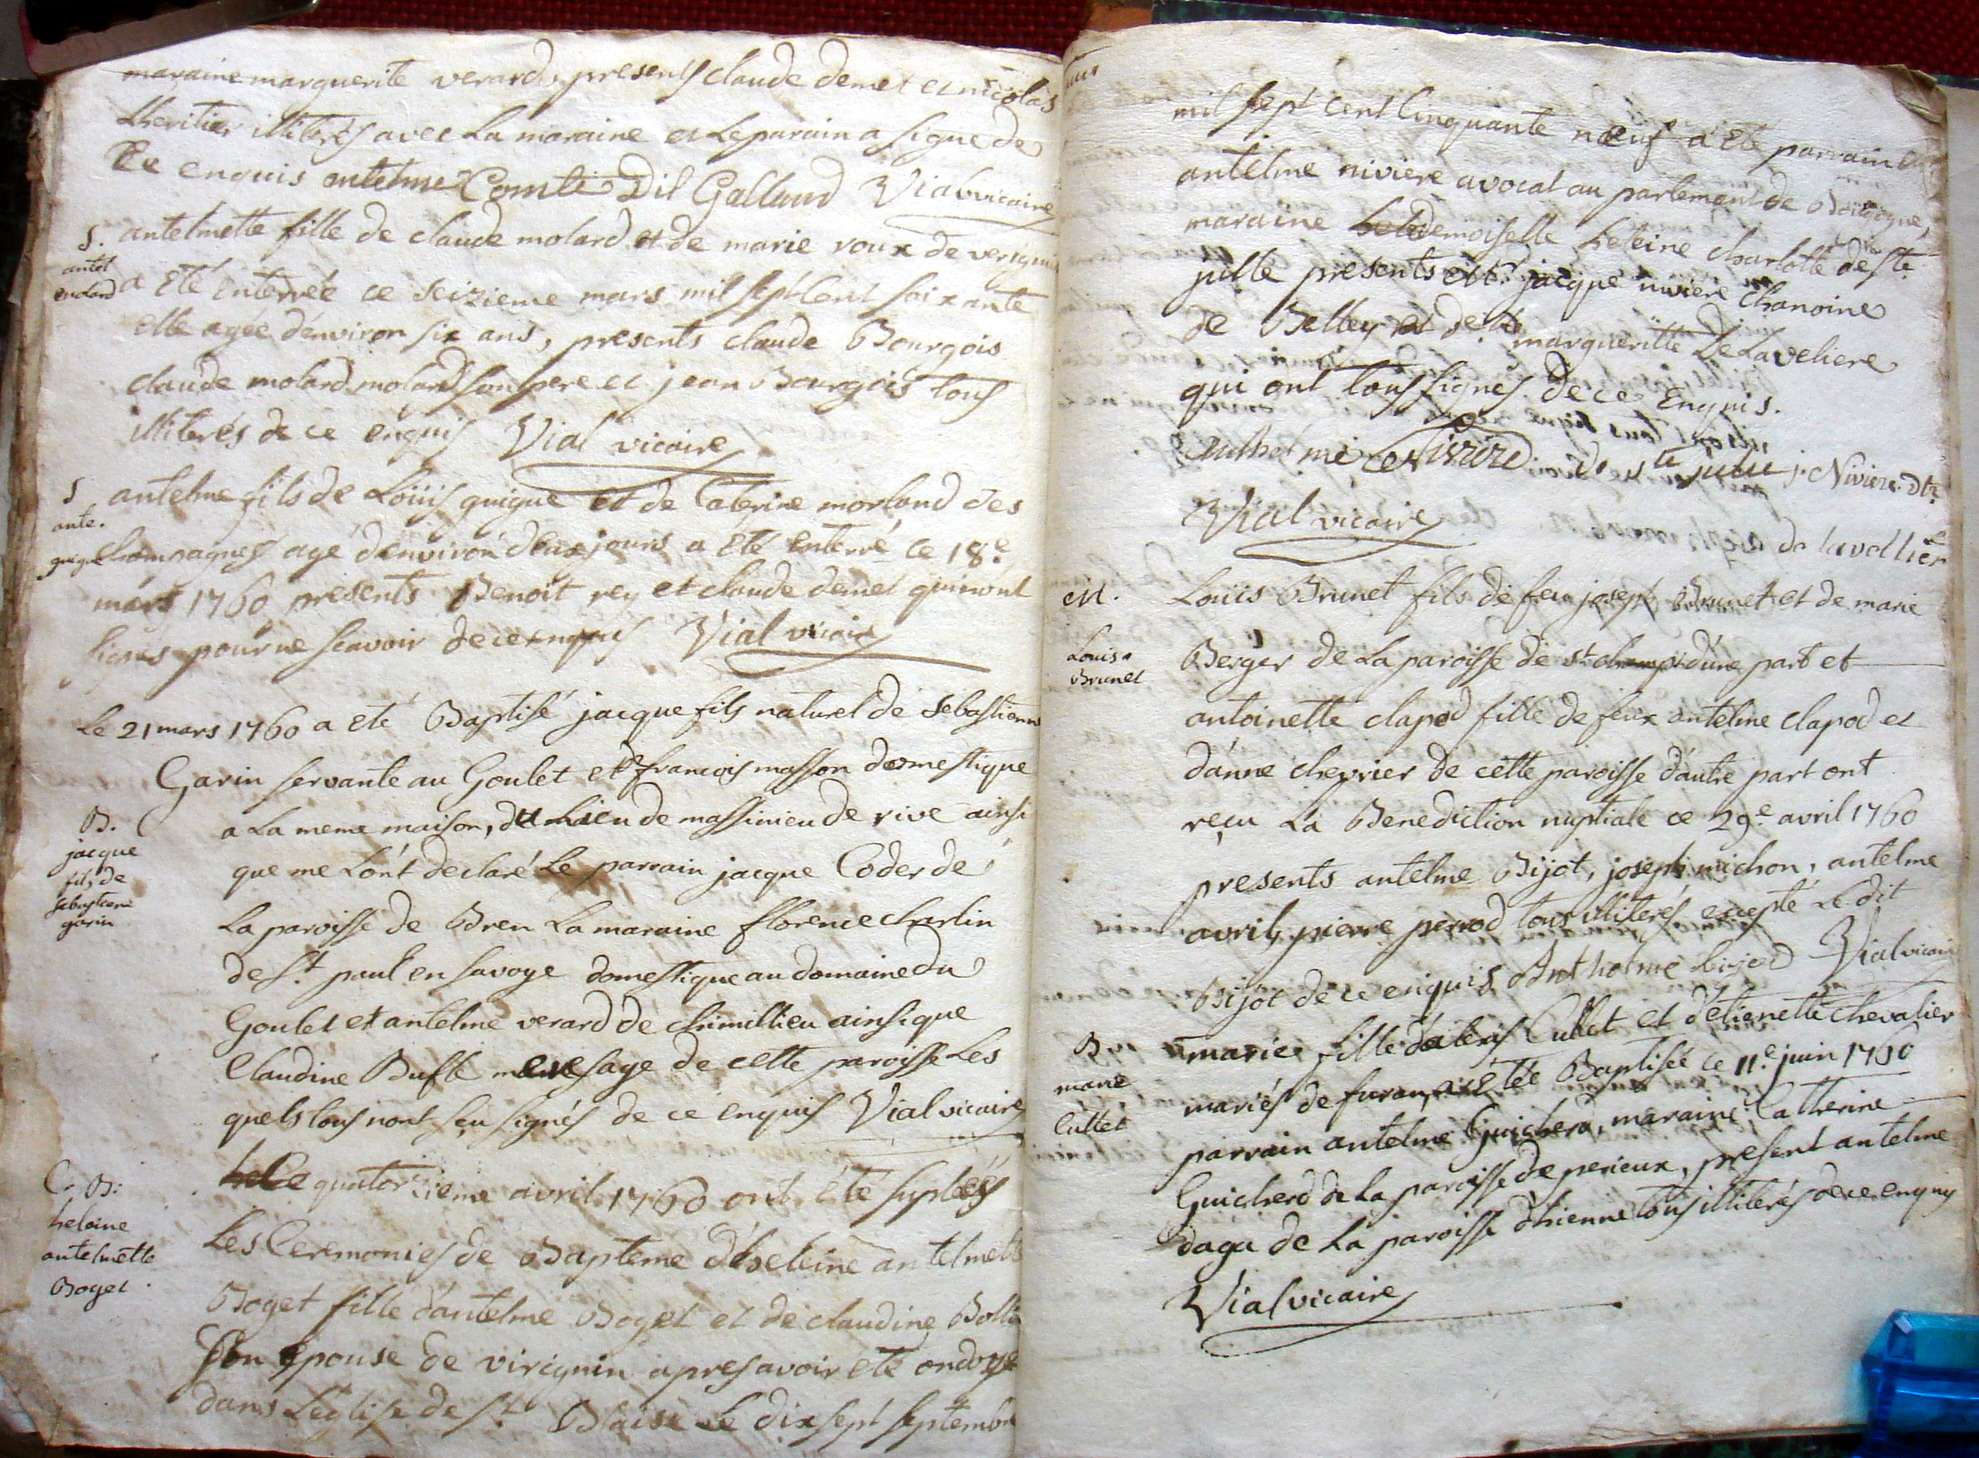 maraine marguerite verard, presents claude demet et nicolas
Lheritier illiterés avec La maraine et Le parain a signe de
ce enquis antelme Comte Dit Galland Vial vicaire
S. antelmette fille de claude molard et de marie roux de
antel
molard
a été enterrée ce seizieme mars mil sept cent soixante
elle agée d'environ six ans, presents claude Bourgois
claude molard molard son pere et jean Bourgois tous
illiterés de ce enquis Vial vicaire
S antelme fils de Loüis guigue et de Caterine morland des
ante.
guigue
Champagnes agé d'environ deux jours a eté enterré ce 18.e
mars 1760 presents Benoit rey et claude demet qui n'ont
signés pour ne scavoir de ce enquis Vial vicaire
Le 21 mars 1760 a eté Baptisé jacque fils naturel de Sebastienne
Garin servante au Goulet et de francois masson domestique
a La meme maison, du Lieu de massinieu de rive ainsi
B.
jacque
fils de
sebastiene
garin
que me L'ont declaré Le parrain jacque Coder de
La paroisse de Bren La maraine florence charlin
de St. paul en savoye domestique au domaine du
Goulet et antelme verard de chimillieu ainsi que
Claudine Buffe mere sage de cette paroisse Les
quels tous n'ont sçu signés de ce enquis Vial vicaire
C. B.
heleine
antelmette
Boget
Le quatorzieme avril 1760 ont été supléés
Les Ceremonies de Bapteme d'heleine antelmette
Boget fille d'antelme Boget et de claudine
son epouse de virignin apres avoir eté ondoyée
dans L'eglise de St. Blaise Le dix sept septembre
mil sept cent cinquante neuf a été parrain
antelme niviere avocat au parlement de Bourgogne,
maraine demoiselle heleine charlotte de ste
julle presents Mr. jacque niviere chanoine
de Belley et de margueritte de Laveliere
qui ont tous signés de ce enquis.
Anthelme Niviere de ste julle j. Niviere
Vial vicaire
de lavelliere
M. Loüis Brunet fils de feu joseph Brunet et de marie
Louis
Brunet
Berger de La paroisse de st champ d'une part et
antoinette clapod fille de feux antelme clapod et
d'anne chevrier de cette paroisse d'autre part ont
reçu La Benediction nuptiale ce 29.e avril 1760
presents antelme Bijot, joseph michon, antelme
avril, pierre perrod tous illiterés excepté Le dit
Bijot de ce enquis Anthelme bijod Vial vicaire
B
marie
Cullet
marie fille d'alexis Cullet et d'etienette chevalier
mariés de furan, a été Baptisée ce 11.e juin 1760
parrain antelme Guicherd, maraine Catherine
Guicherd de La paroisse de perieux, present antelme
daga de La paroisse d'hienne tous illiterés de ce enquis
Vial vicaire